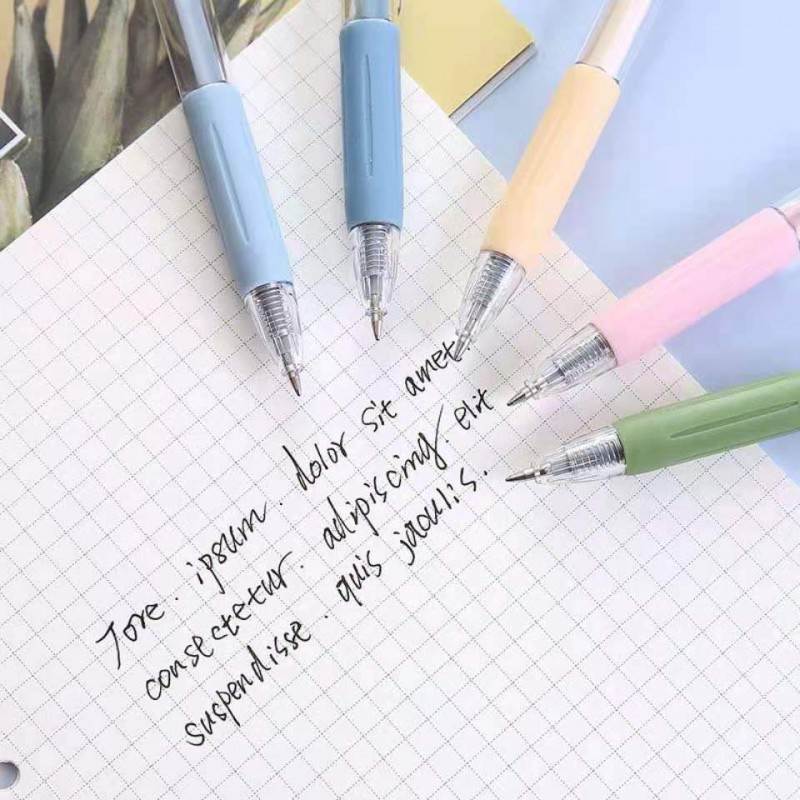 Tore. ipsum. dolor sit amet.
consectetur. adipiscing. elit
suspendisse. quis jaculis.